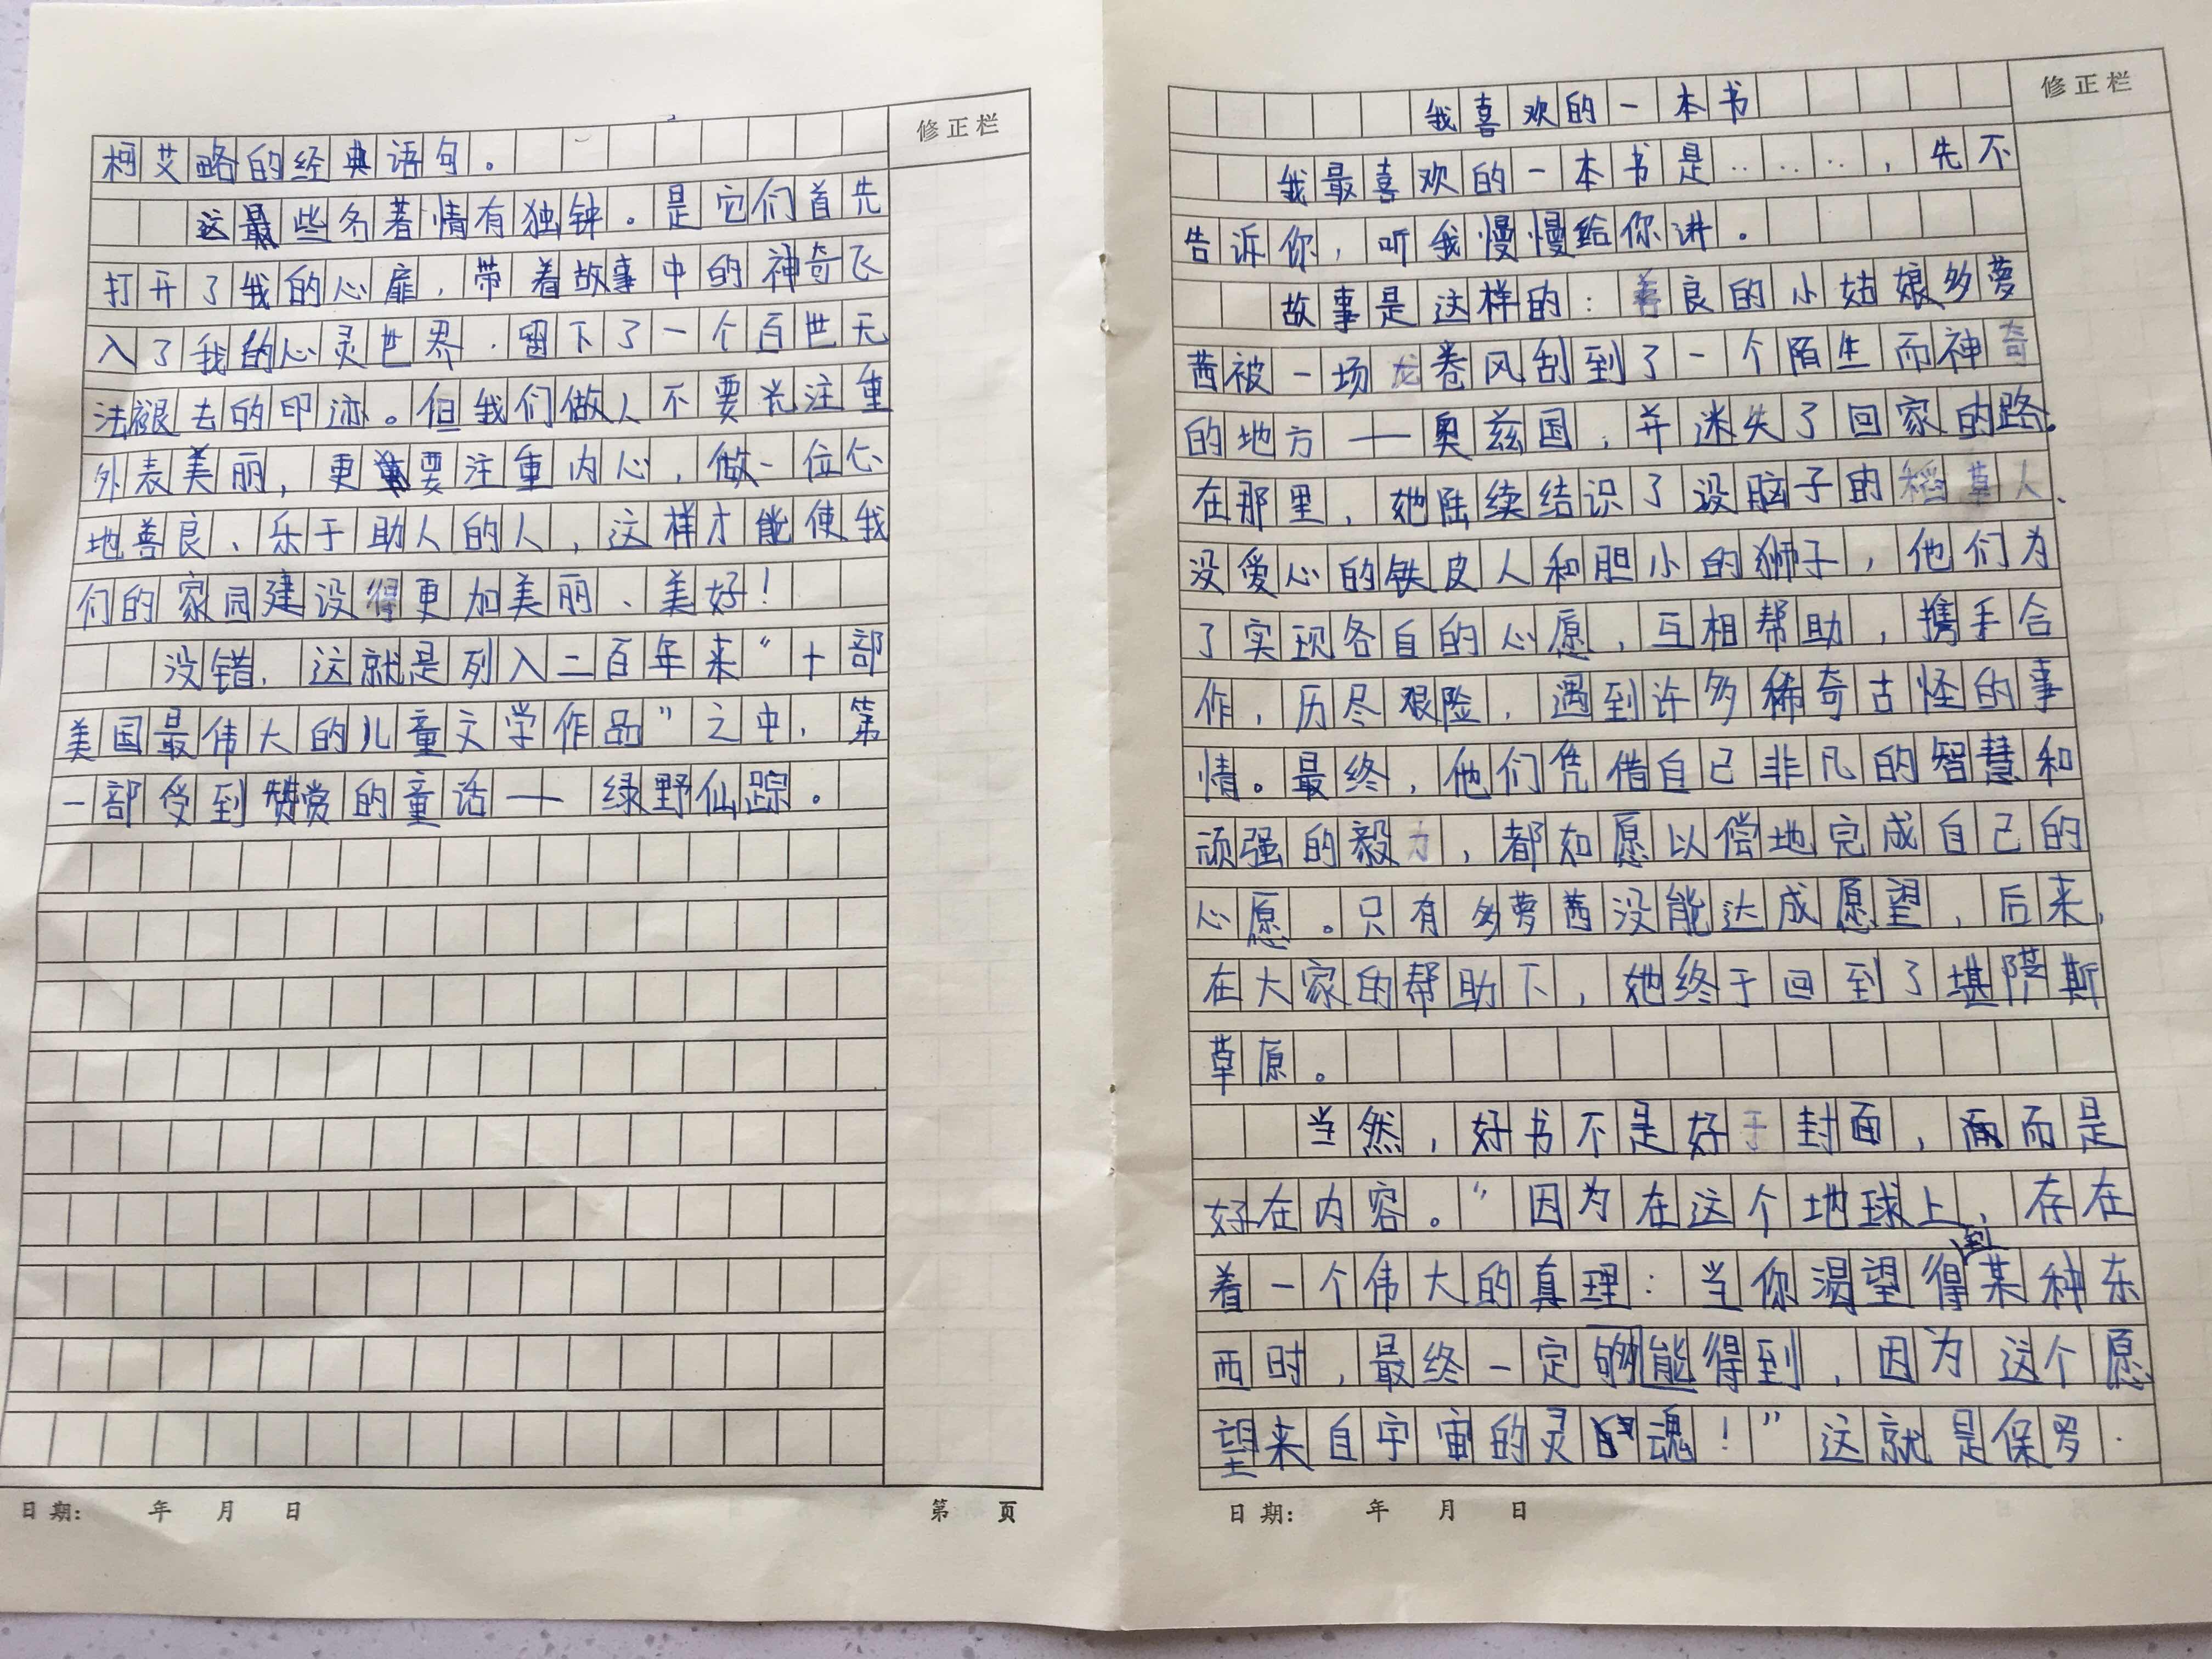 修正栏
我喜欢的一本书
我最喜欢的一本书是……，先不
告诉你，听我慢慢给你讲。
故事是这样的：善良的小姑娘多萝
茜被一场龙卷风刮到了一个陌生而神奇
的地方——奥兹国，并迷失了回家的路。
在那里，她陆续结识了没脑子的稻草人、
没爱心的铁皮人和胆小的狮子，他们为
了实现各自的心愿，互相帮助，携手合
作，历尽艰险，遇到许多稀奇古怪的事
情。最终，他们凭借自己非凡的智慧和
顽强的毅力，都如愿以偿地完成自己的
心愿。只有多萝茜没能达成愿望，后来，
在大家的帮助下，她终于回到了堪萨斯
草原。
当然，好书不是好于封面，而是
好在内容。“因为在这个地球上，存在
着一个伟大的真理：当你渴望得到某种东
西时，最终一定能够得到，因为这个愿
望来自宇宙的灵魂！”这就是保罗·
日期： 年 月 日
修正栏
柯艾略的经典语句。
这些名著情有独钟。是它们首先
打开了我的心扉，带着故事中的神奇飞
入了我的心灵世界，留下了一个百世无
法褪去的印迹。但我们做人不要光注重
外表美丽，更要注重内心，做一位心
地善良、乐于助人的人，这样才能使我
们的家园建设得更加美丽、美好！
没错，这就是列入二百年来“十部
美国最伟大的儿童文学作品”之中，第
一部受到赞赏的童话——绿野仙踪。
日期： 年 月 日 第 页